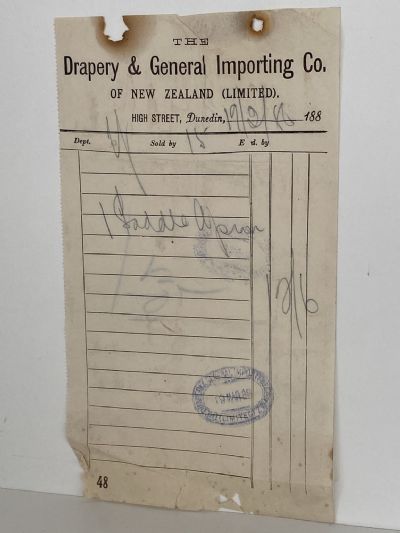 THE
Drapery & General Importing Co.
OF NEW ZEALAND (LIMITED).
HIGH STREET, Dunedin, 188
Dept. Sold by 15 E d. by
1 Saddle Apron
12/6
48